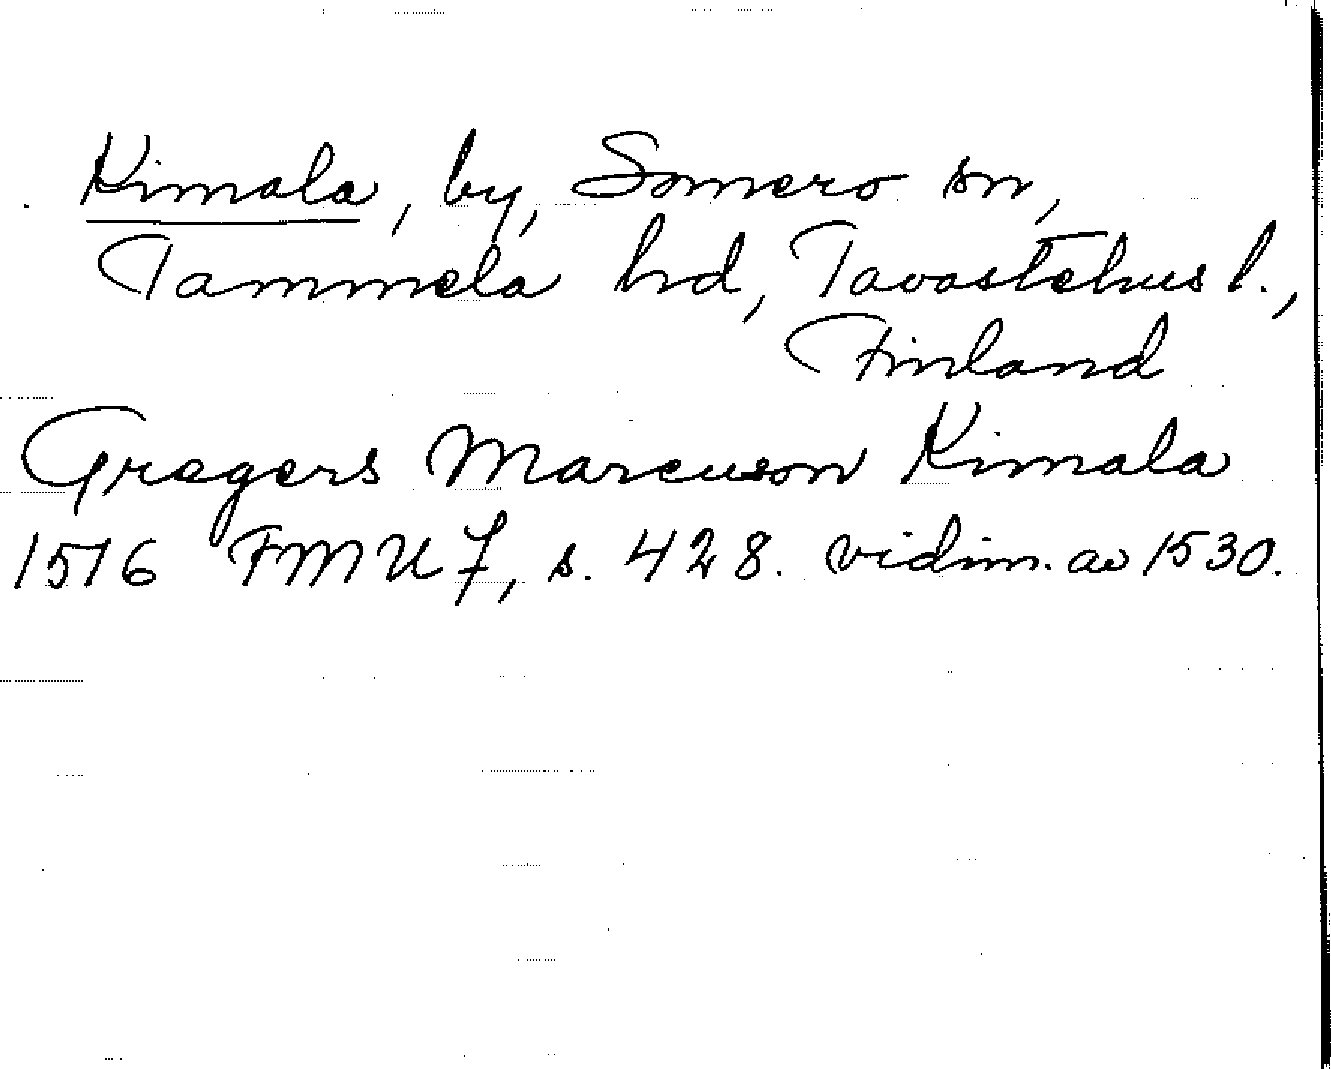 Kimala, by, Somero sn,
Tammela hd, Tavastehus l.,
Finland
Gregers Marcuson Kimala
1516 FMU 7, s. 428. vidim. av 1530.